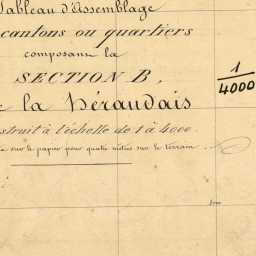 Tableau d'Assemblage
cantons ou quartiers
composant la
SECTION B,
la Héraudais
struit à l'échelle de 1 à 4000.
sur le papier pour quatre mètres sur le terrain.
1
4000